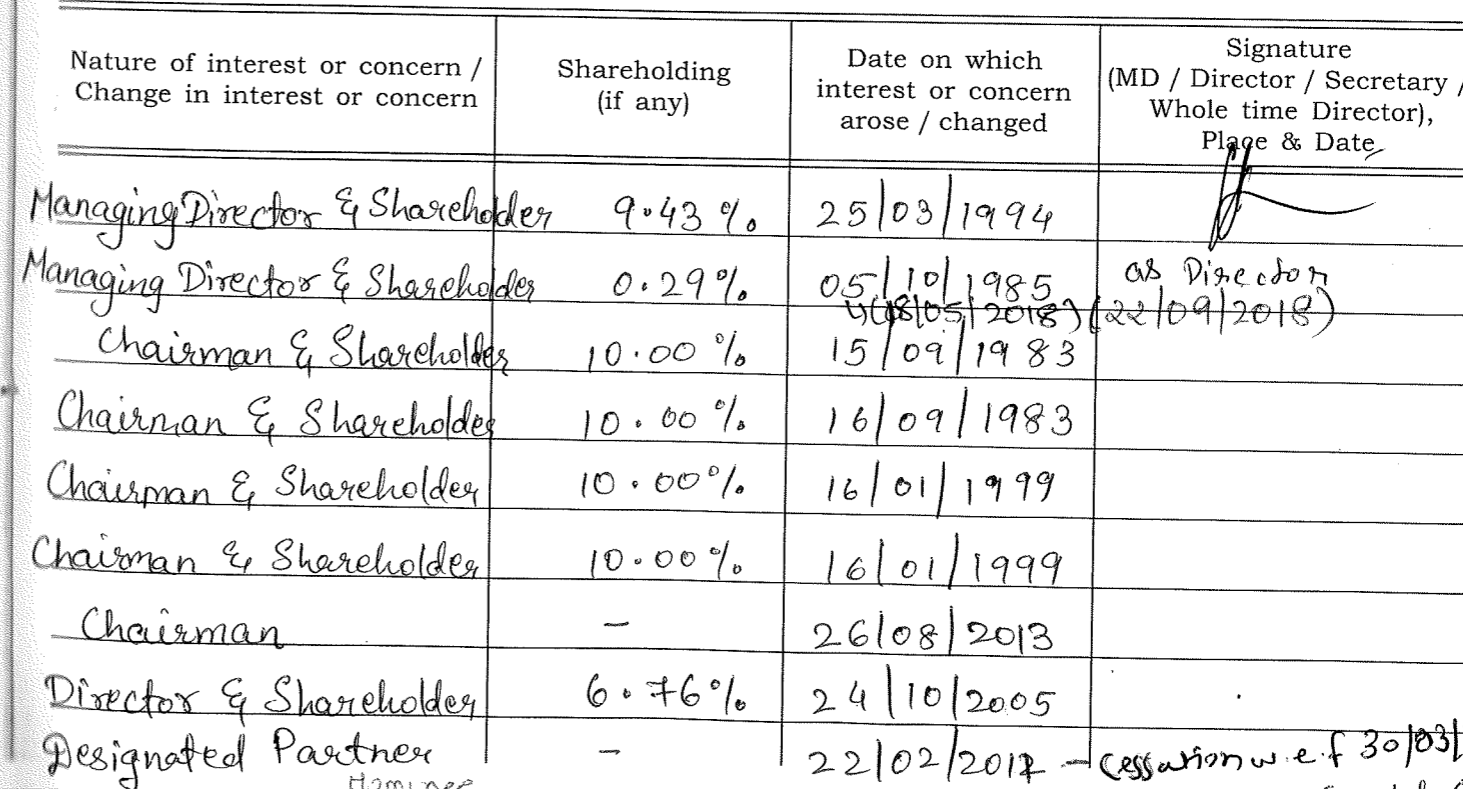 Nature of interest or concern / Shareholding Date on which Signature
Change in interest or concern (if any) interest or concern (MD / Director / Secretary /
arose / changed Whole time Director),
Place & Date
Managing Director & Shareholder 9.43 % 25/03/1994
Managing Director & Shareholder 0.29% 05/10/1985 as Director
(18/05/2018) (22/09/2018)
Chairman & Shareholder 10.00 % 15/09/1983
Chairman & Shareholder 10.00 % 16/09/1983
Chairman & Shareholder 10.00% 16/01/1999
Chairman & Shareholder 10.00% 16/01/1999
Chairman - 26/08/2013
Director & Shareholder 6.76% 24/10/2005
Designated Partner - 22/02/2017 - cessation w.e.f 30/03/
Nominee